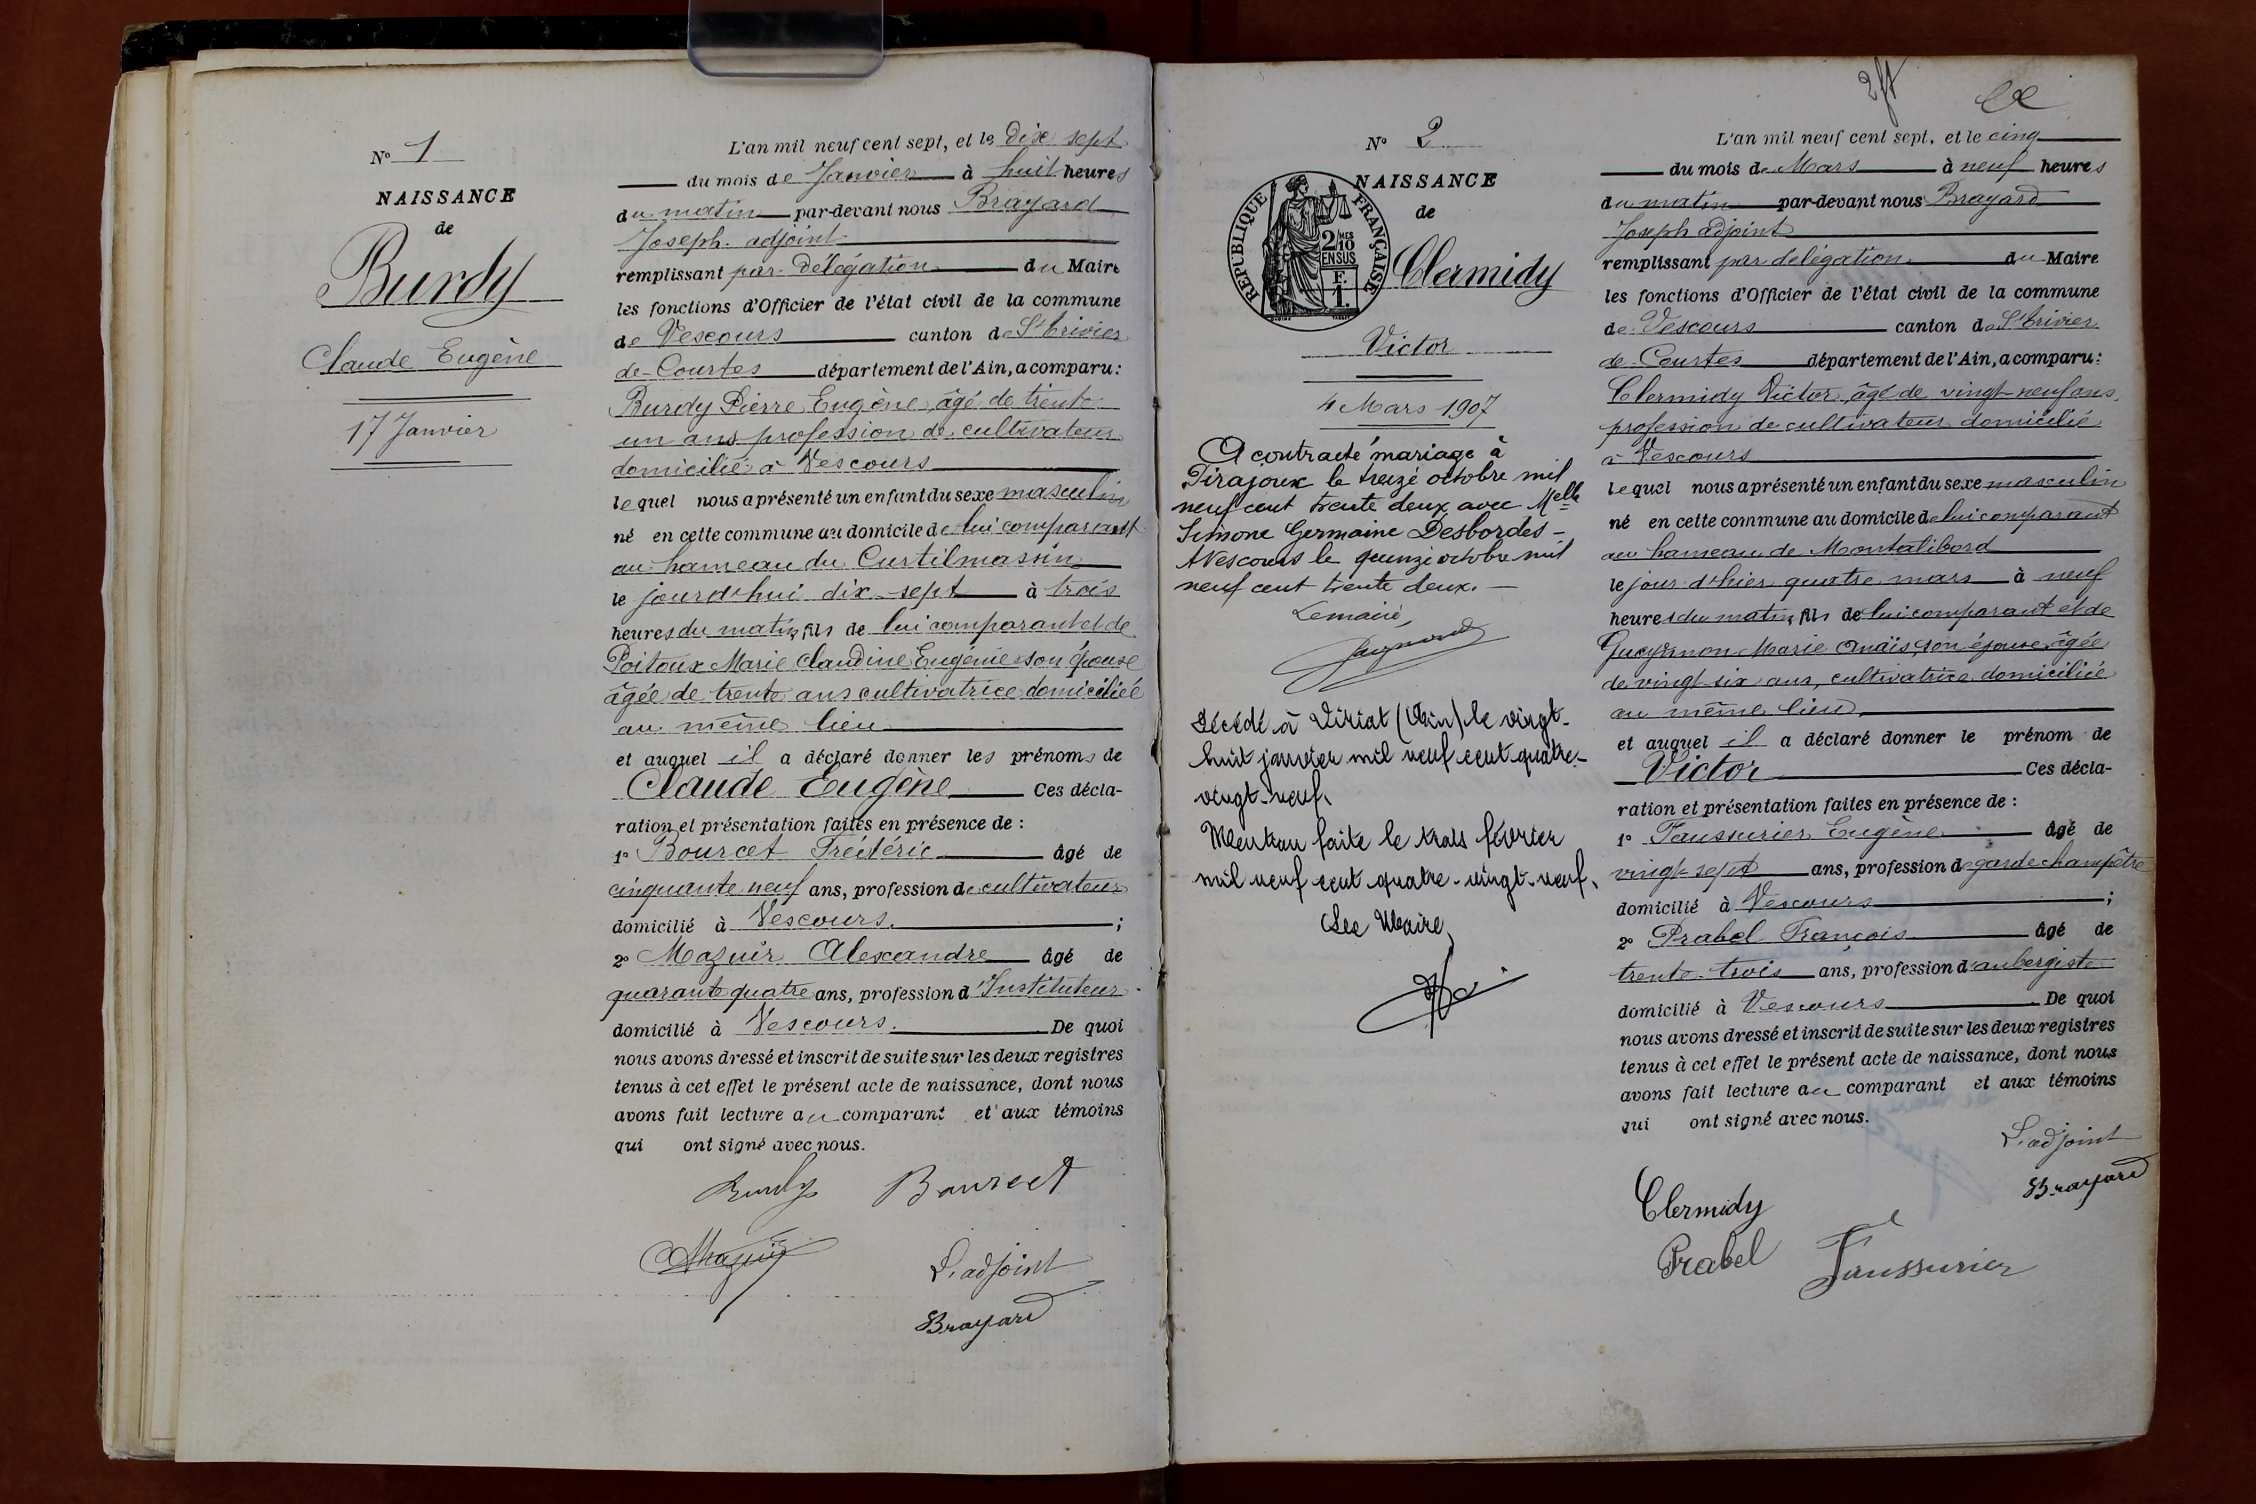 N° 1
NAISSANCE
de
Burdy
Claude Eugène
17 Janvier
L'an mil neuf cent sept, et le dix sept
du mois de Janvier à huit heures
du matin par-devant nous Brayard
Joseph adjoint
remplissant par délégation du Maire
les fonctions d'Officier de l'état civil de la commune
de Vescours canton de St Trivier
de Courtes département de l'Ain, a comparu :
Burdy Pierre Eugène âgé de trente
un ans profession de cultivateur
domicilié à Vescours
lequel nous a présenté un enfant du sexe masculin
né en cette commune au domicile de lui comparant
au hameau du Curtilmassin
le jourd'hui dix-sept à trois
heures du matin, fils de lui comparant et de
Poitoux Marie Claudine Eugénie son épouse
âgée de trente ans cultivatrice domiciliée
au même lieu
et auquel il a déclaré donner les prénoms de
Claude Eugène Ces décla-
ration et présentation faites en présence de :
1° Bourcet Frédéric âgé de
cinquante neuf ans, profession de cultivateur
domicilié à Vescours. ;
2° Mazuir Alexandre âgé de
quarante quatre ans, profession d'Instituteur
domicilié à Vescours. De quoi
nous avons dressé et inscrit de suite sur les deux registres
tenus à cet effet le présent acte de naissance, dont nous
avons fait lecture au comparant et aux témoins
qui ont signé avec nous.
Burdy Bourcet
AMazuir L'adjoint
Brayard
N° 2
NAISSANCE
de
RÉPUBLIQUE FRANÇAISE
2 MES
10
EN SUS
F.
1.
Clermidy
Victor
4 Mars 1907
A contracté mariage à
Pirajoux le treize octobre mil
neuf cent trente deux avec Melle
Simone Germaine Desbordes -
A Vescours le quinze octobre mil
neuf cent trente deux. -
Le maire,
Décédé à Viriat (Ain) le vingt-
huit janvier mil neuf cent quatre-
vingt-neuf.
Mention faite le trois février
mil neuf cent quatre-vingt-neuf.
Le Maire,
L'an mil neuf cent sept, et le cinq
du mois de Mars à neuf heures
du matin par-devant nous Brayard
Joseph adjoint
remplissant par délégation du Maire
les fonctions d'Officier de l'état civil de la commune
de Vescours canton de St Trivier
de Courtes département de l'Ain, a comparu :
Clermidy Victor, âgé de vingt-neuf ans,
profession de cultivateur domicilié
à Vescours
lequel nous a présenté un enfant du sexe masculin
né en cette commune au domicile de lui comparant
au hameau de Montalibord
le jour d'hier quatre mars à neuf
heures du matin, fils de lui comparant et de
Marie Anaïs, son épouse, âgée
de vingt-six ans, cultivatrice domiciliée
au même lieu
et auquel il a déclaré donner le prénom de
Victor Ces décla-
ration et présentation faites en présence de :
1° Faussurier Eugène âgé de
vingt-sept ans, profession de garde champêtre
domicilié à Vescours ;
2° Prabel François âgé de
trente-trois ans, profession d'aubergiste
domicilié à Vescours De quoi
nous avons dressé et inscrit de suite sur les deux registres
tenus à cet effet le présent acte de naissance, dont nous
avons fait lecture au comparant et aux témoins
qui ont signé avec nous.
L'adjoint
Brayard
Clermidy
Prabel Faussurier